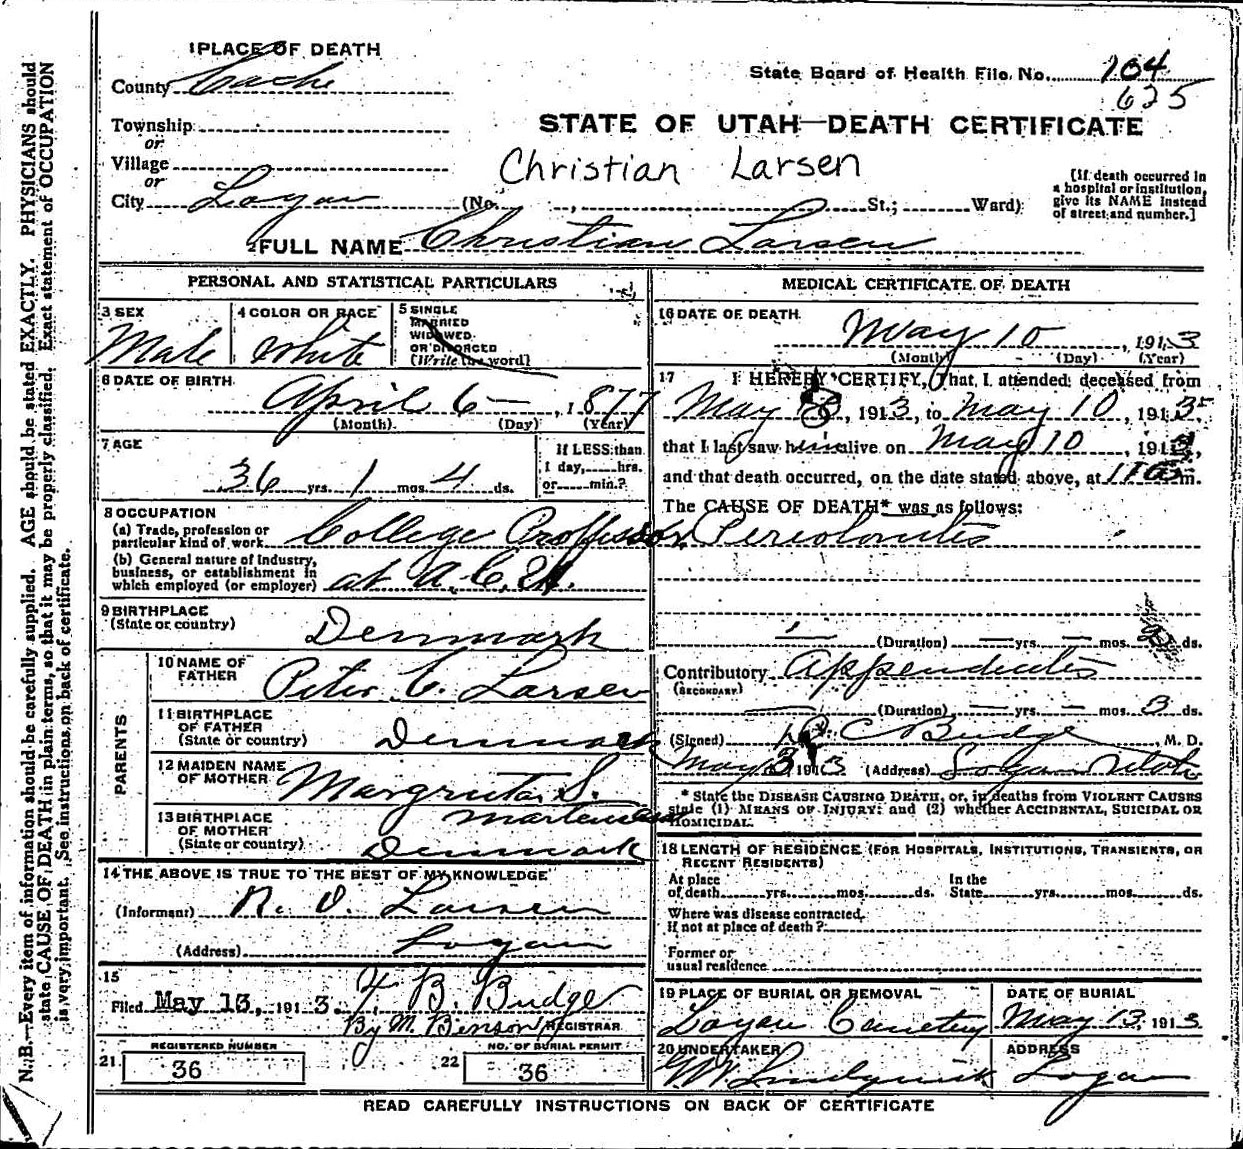 1 PLACE OF DEATH
County Cache
State Board of Health File No. 104
625
Township
or
Village
or
City Logan (No. , St.; Ward)
STATE OF UTAH—DEATH CERTIFICATE
Christian Larsen
[If death occurred in
a hospital or institution,
give its NAME instead
of street and number.]
FULL NAME Christian Larsen
PERSONAL AND STATISTICAL PARTICULARS
3 SEX
Male
4 COLOR OR RACE
White
5 SINGLE
MARRIED
WIDOWED
OR DIVORCED
(Write the word)
6 DATE OF BIRTH
April 6 , 1877
(Month) (Day) (Year)
7 AGE
36 yrs. 1 mos. 4 ds.
If LESS than
1 day, hrs.
or min.?
8 OCCUPATION
(a) Trade, profession or
particular kind of work College Proffessor
(b) General nature of industry,
business, or establishment in
which employed (or employer) at A.C.U.
9 BIRTHPLACE
(State or country)
Denmark
PARENTS
10 NAME OF
FATHER
Peter C. Larsen
11 BIRTHPLACE
OF FATHER
(State or country) Denmark
12 MAIDEN NAME
OF MOTHER
Margreta S.
Martensen
13 BIRTHPLACE
OF MOTHER
(State or country) Denmark
14 THE ABOVE IS TRUE TO THE BEST OF MY KNOWLEDGE
(Informant) N. O. Larsen
(Address) Logan
15
Filed May 13, 1913. F. B. Budge
By M. Benson REGISTRAR
21 REGISTERED NUMBER
36
22 NO. OF BURIAL PERMIT
36
MEDICAL CERTIFICATE OF DEATH
16 DATE OF DEATH
May 10 , 1913
(Month) (Day) (Year)
17 I HEREBY CERTIFY, That I attended deceased from
May 8, 1913, to May 10, 1913
that I last saw him alive on May 10, 1913,
and that death occurred, on the date stated above, at m.
The CAUSE OF DEATH* was as follows:
Peritonitis
(Duration) yrs. mos. ds.
Contributory Appendicitis
(SECONDARY)
(Duration) yrs. mos. 3 ds.
(Signed) D. C. Budge, M. D.
May 13, 1913 (Address) Logan Utah
* State the DISEASE CAUSING DEATH, or, in deaths from VIOLENT CAUSES
state (1) MEANS OF INJURY: and (2) whether ACCIDENTAL, SUICIDAL OR
HOMICIDAL.
18 LENGTH OF RESIDENCE (FOR HOSPITALS, INSTITUTIONS, TRANSIENTS, OR
RECENT RESIDENTS)
At place
of death yrs. mos. ds.
In the
State yrs. mos. ds.
Where was disease contracted,
If not at place of death?
Former or
usual residence
19 PLACE OF BURIAL OR REMOVAL
Logan Cemetery
DATE OF BURIAL
May 13, 1913
20 UNDERTAKER
W. Lindquist
ADDRESS
Logan
READ CAREFULLY INSTRUCTIONS ON BACK OF CERTIFICATE
N.B.—Every item of information should be carefully supplied. AGE should be stated EXACTLY. PHYSICIANS should
state CAUSE OF DEATH in plain terms, so that it may be properly classified. Exact statement of OCCUPATION
is very important. See instructions on back of certificate.